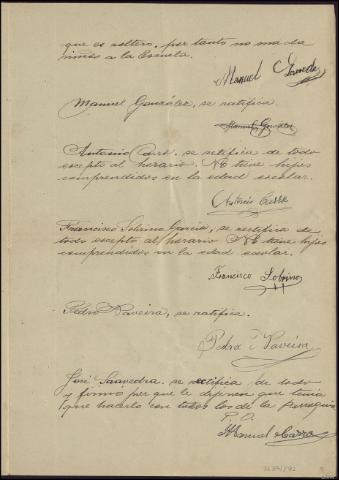 que es soltero, por tanto no manda
niños a la Escuela.
Manuel
Manuel González, se ratifica.
Manuel González
Antonio se retifica de todo
escepto al horario. NO tiene hijos
comprendidos en la edad escolar.
Antonio
Francisco Sobrino García, se rectifica de
todo escepto al horario NO tiene hijos
comprendidos en la edad escolar.
Francisco Sobrino
Pedro Paveira, se ratifica.
Pedro Paveira
José Saavedra se retifica de todo
y firmo por que le dijeron que tenía
que hacerlo con todos los de la Parroquia
P. O.
Manuel